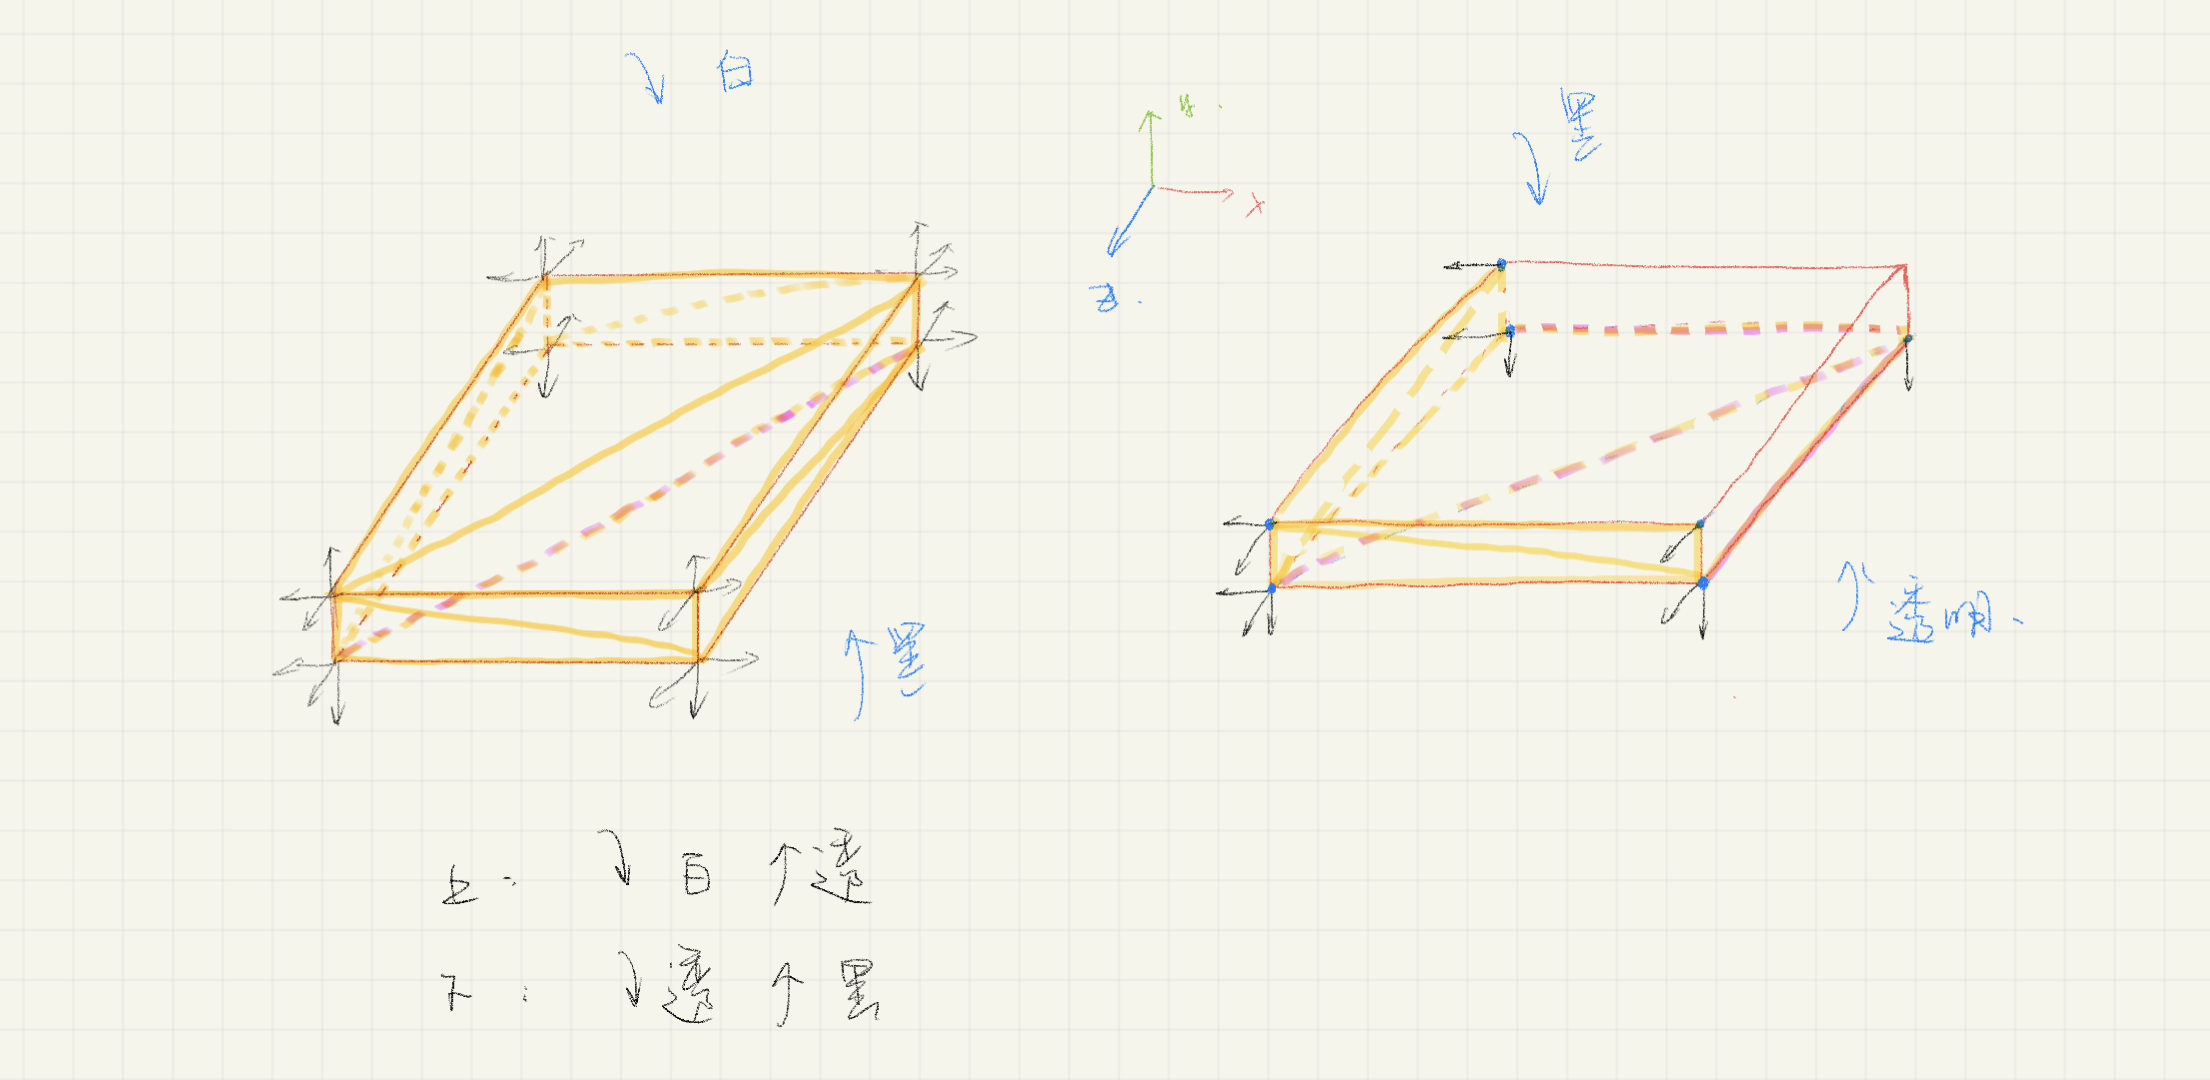 ↓ 白
y
x
z
↓ 黑
↑ 黑
↑ 透明.
上: ↓ 白 ↑ 透
下: ↓ 透 ↑ 黑